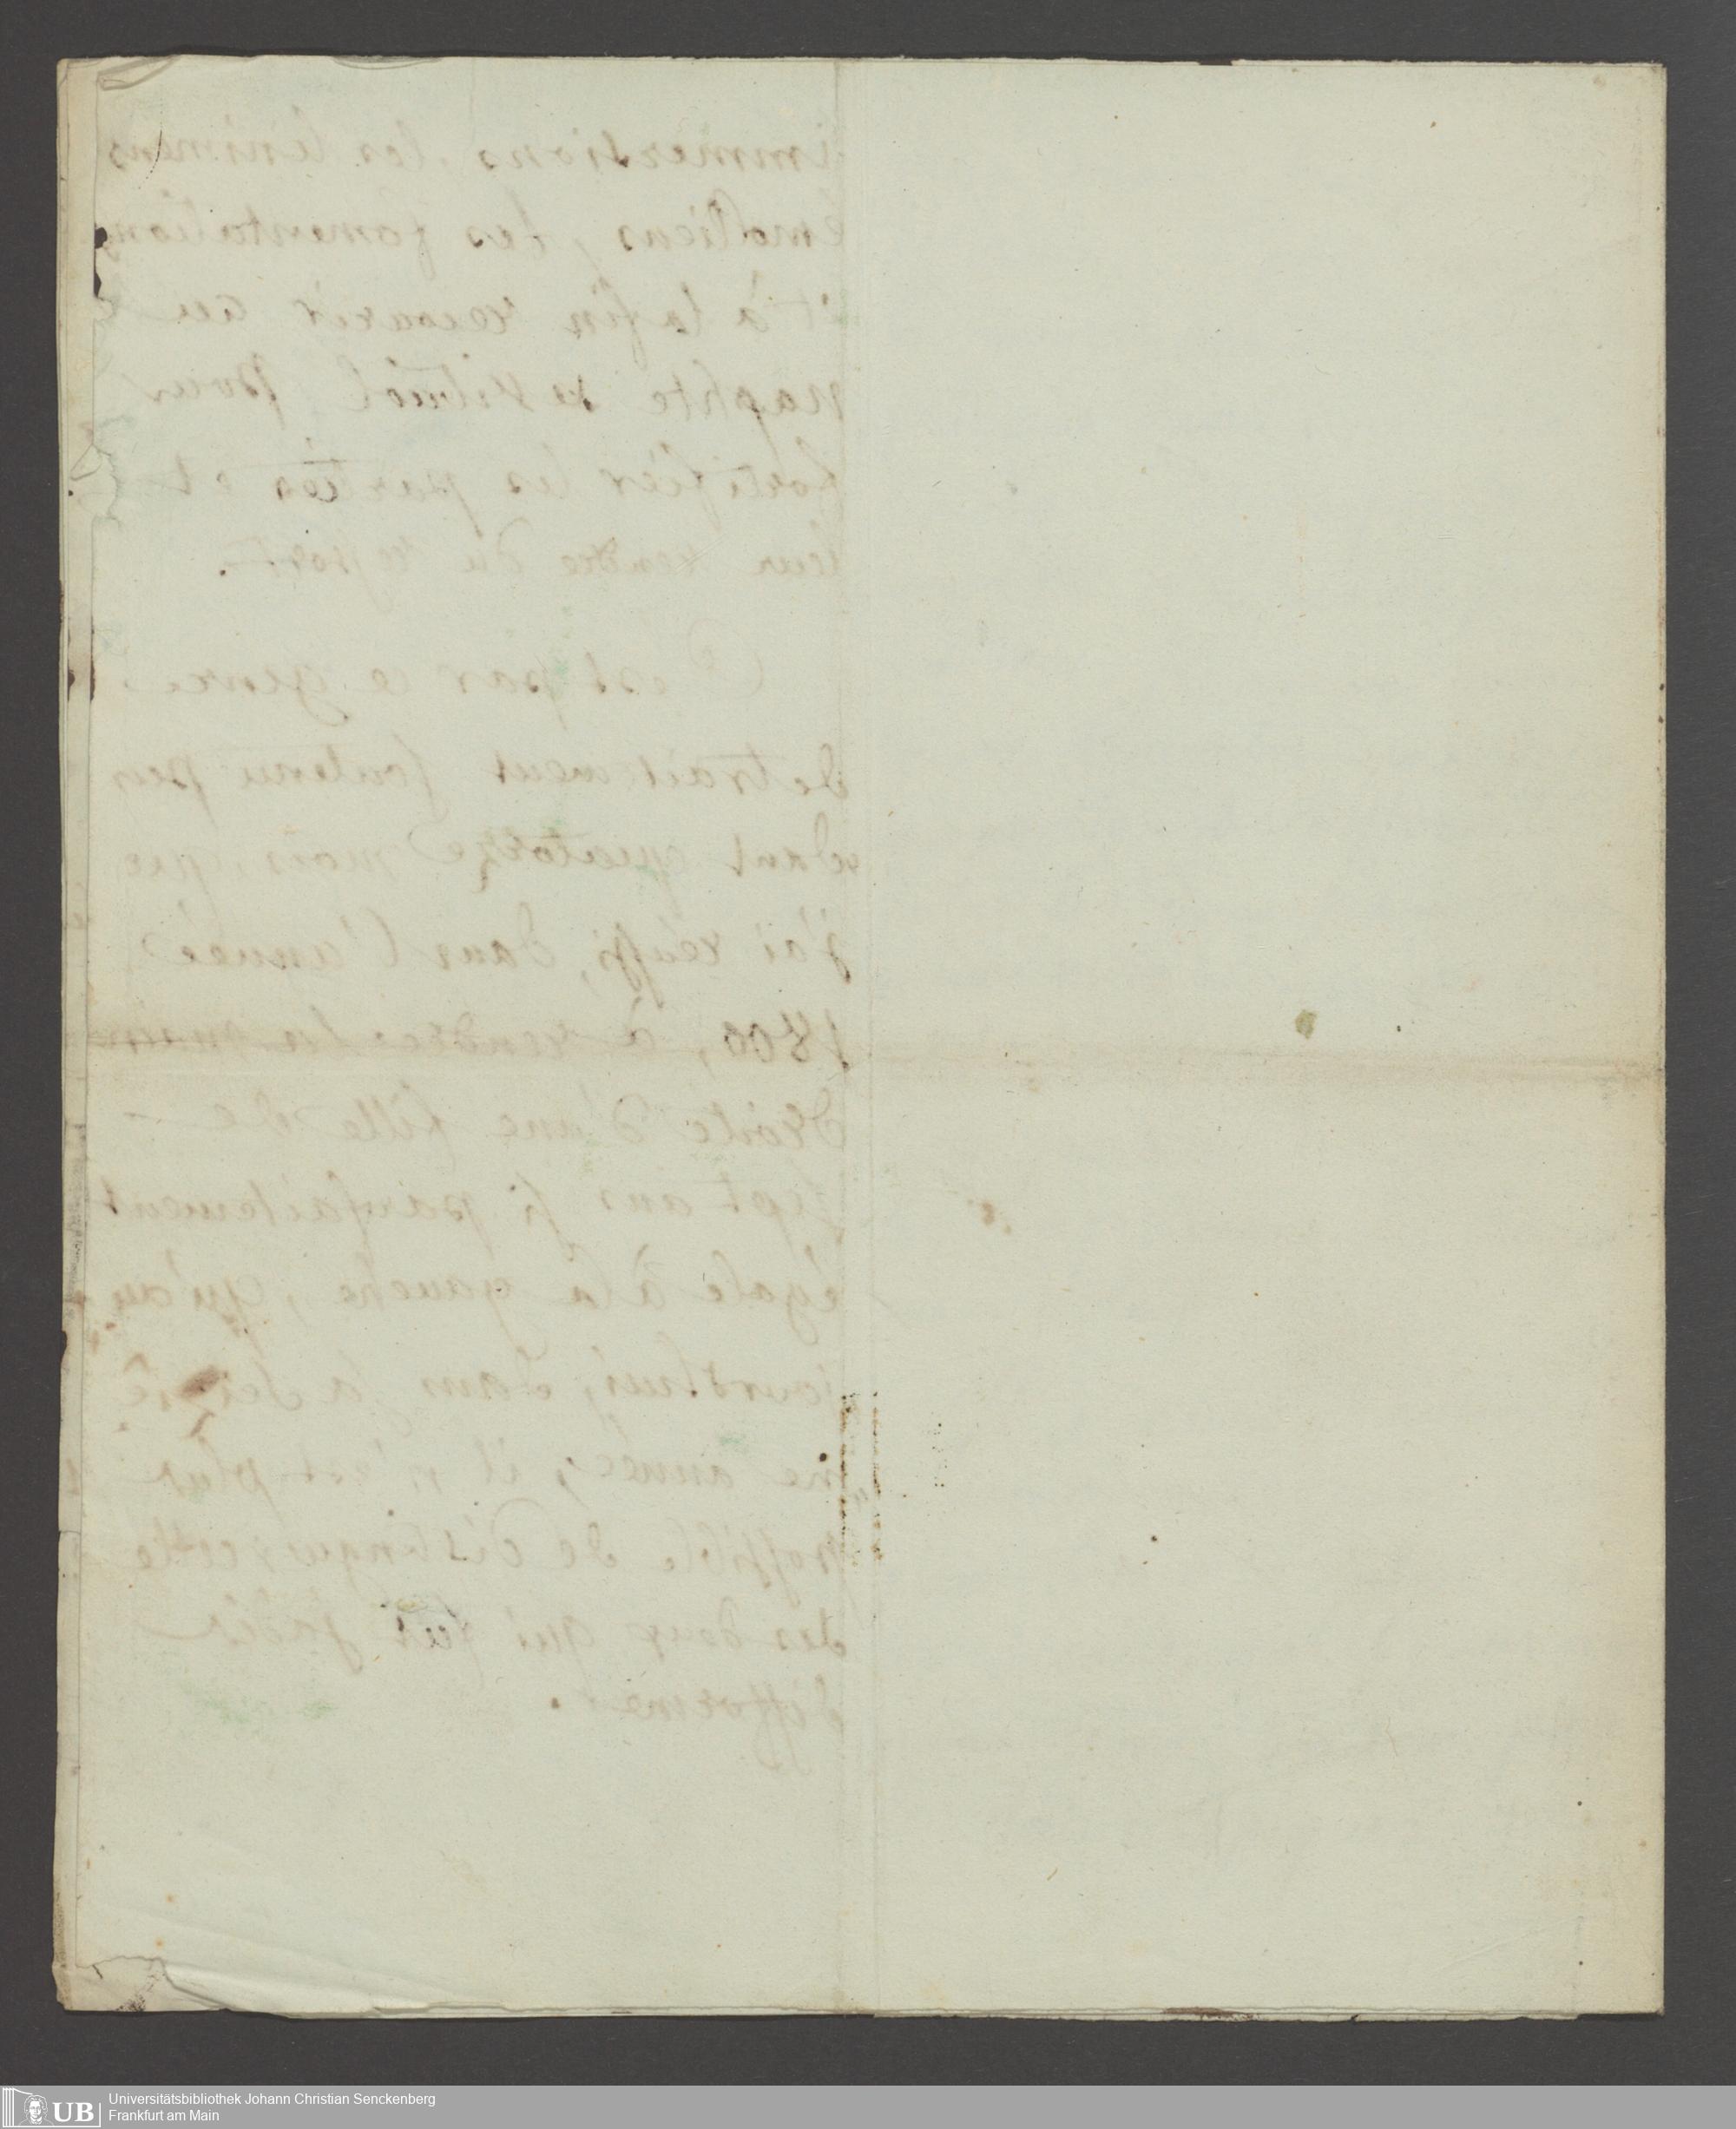 immersions, les linimens
émolliens, les fomentations
et à la fin recourir au
naphte de vitriol pour
fortifier les parties et
leur rendre du ressort.
C'est par ce genre
de traitement soutenu pen
dant quatorze mois, que
j'ai réussi, dans l'année
1800, à rendre la main
droite d'une fille de
sept ans si parfaitement
égale à la gauche, qu'au
jourdhui, dans sa
me année, il n'est plus
possible de distinguer celle
des deux qui fut jadis
difforme.
UB
Universitätsbibliothek Johann Christian Senckenberg
Frankfurt am Main